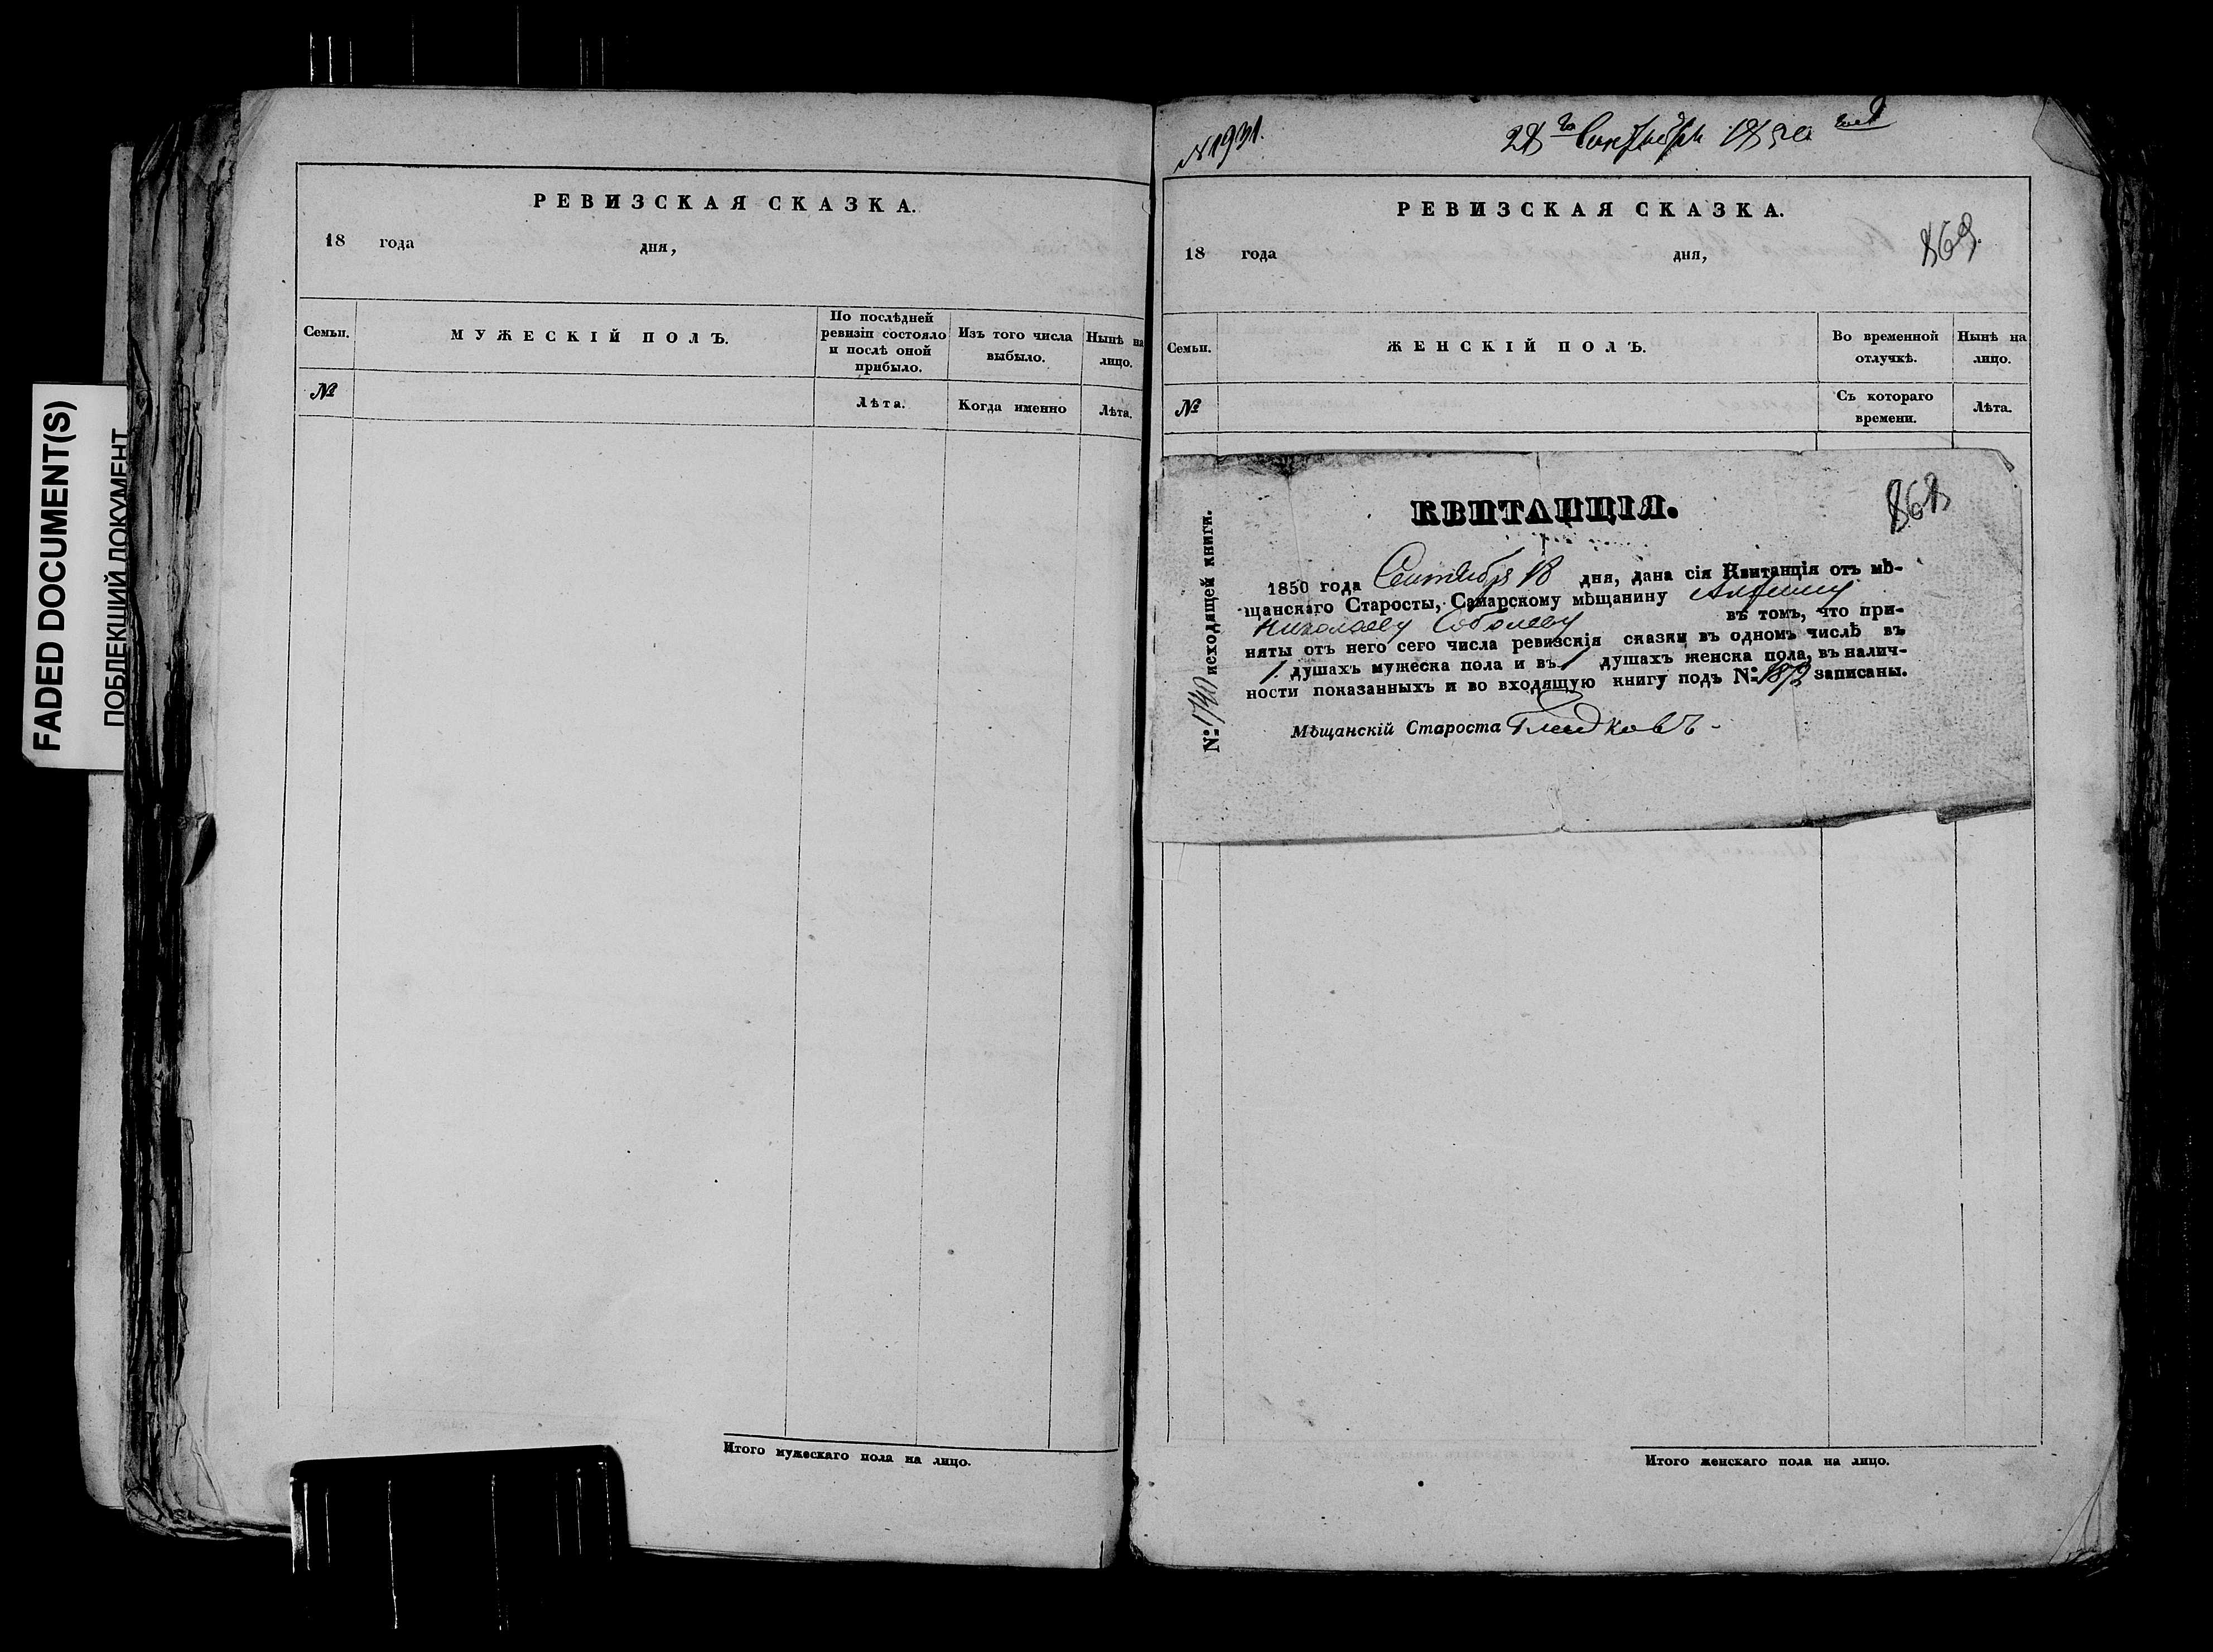 FADED DOCUMENT(S)
ПОБЛЕКШИЙ ДОКУМЕНТ
РЕВИЗСКАЯ СКАЗКА.
18 года дня,
Семьи.
МУЖЕСКІЙ ПОЛЪ.
По послѣдней
ревизіи состояло
и послѣ оной
прибыло.
Изъ того числа
выбыло.
Нынѣ на
лицо.
№
Лѣта.
Когда именно
Лѣта.
Итого мужескаго пола на лицо.
№ 1931.
28го Сентября 1850 года
РЕВИЗСКАЯ СКАЗКА.
18 года дня,
869.
Семьи.
ЖЕНСКІЙ ПОЛЪ.
Во временной
отлучкѣ.
Нынѣ на
лицо.
№
Съ котораго
времени.
Лѣта.
КВИТАНЦІЯ.
868
№: 1740 исходящей книги.
1850 года Сентября 18 дня, дана сія Квитанція отъ мѣ-
щанскаго Старосты, Самарскому мѣщанину
Николаеву Соболеву въ томъ, что при-
няты отъ него сего числа ревизскія сказки въ одномъ числѣ въ
1 душахъ мужеска пола и въ 1 душахъ женска пола, въ налич-
ности показанныхъ и во входящую книгу подъ №: 1872 записаны.
Мѣщанскій Староста
Итого женскаго пола на лицо.